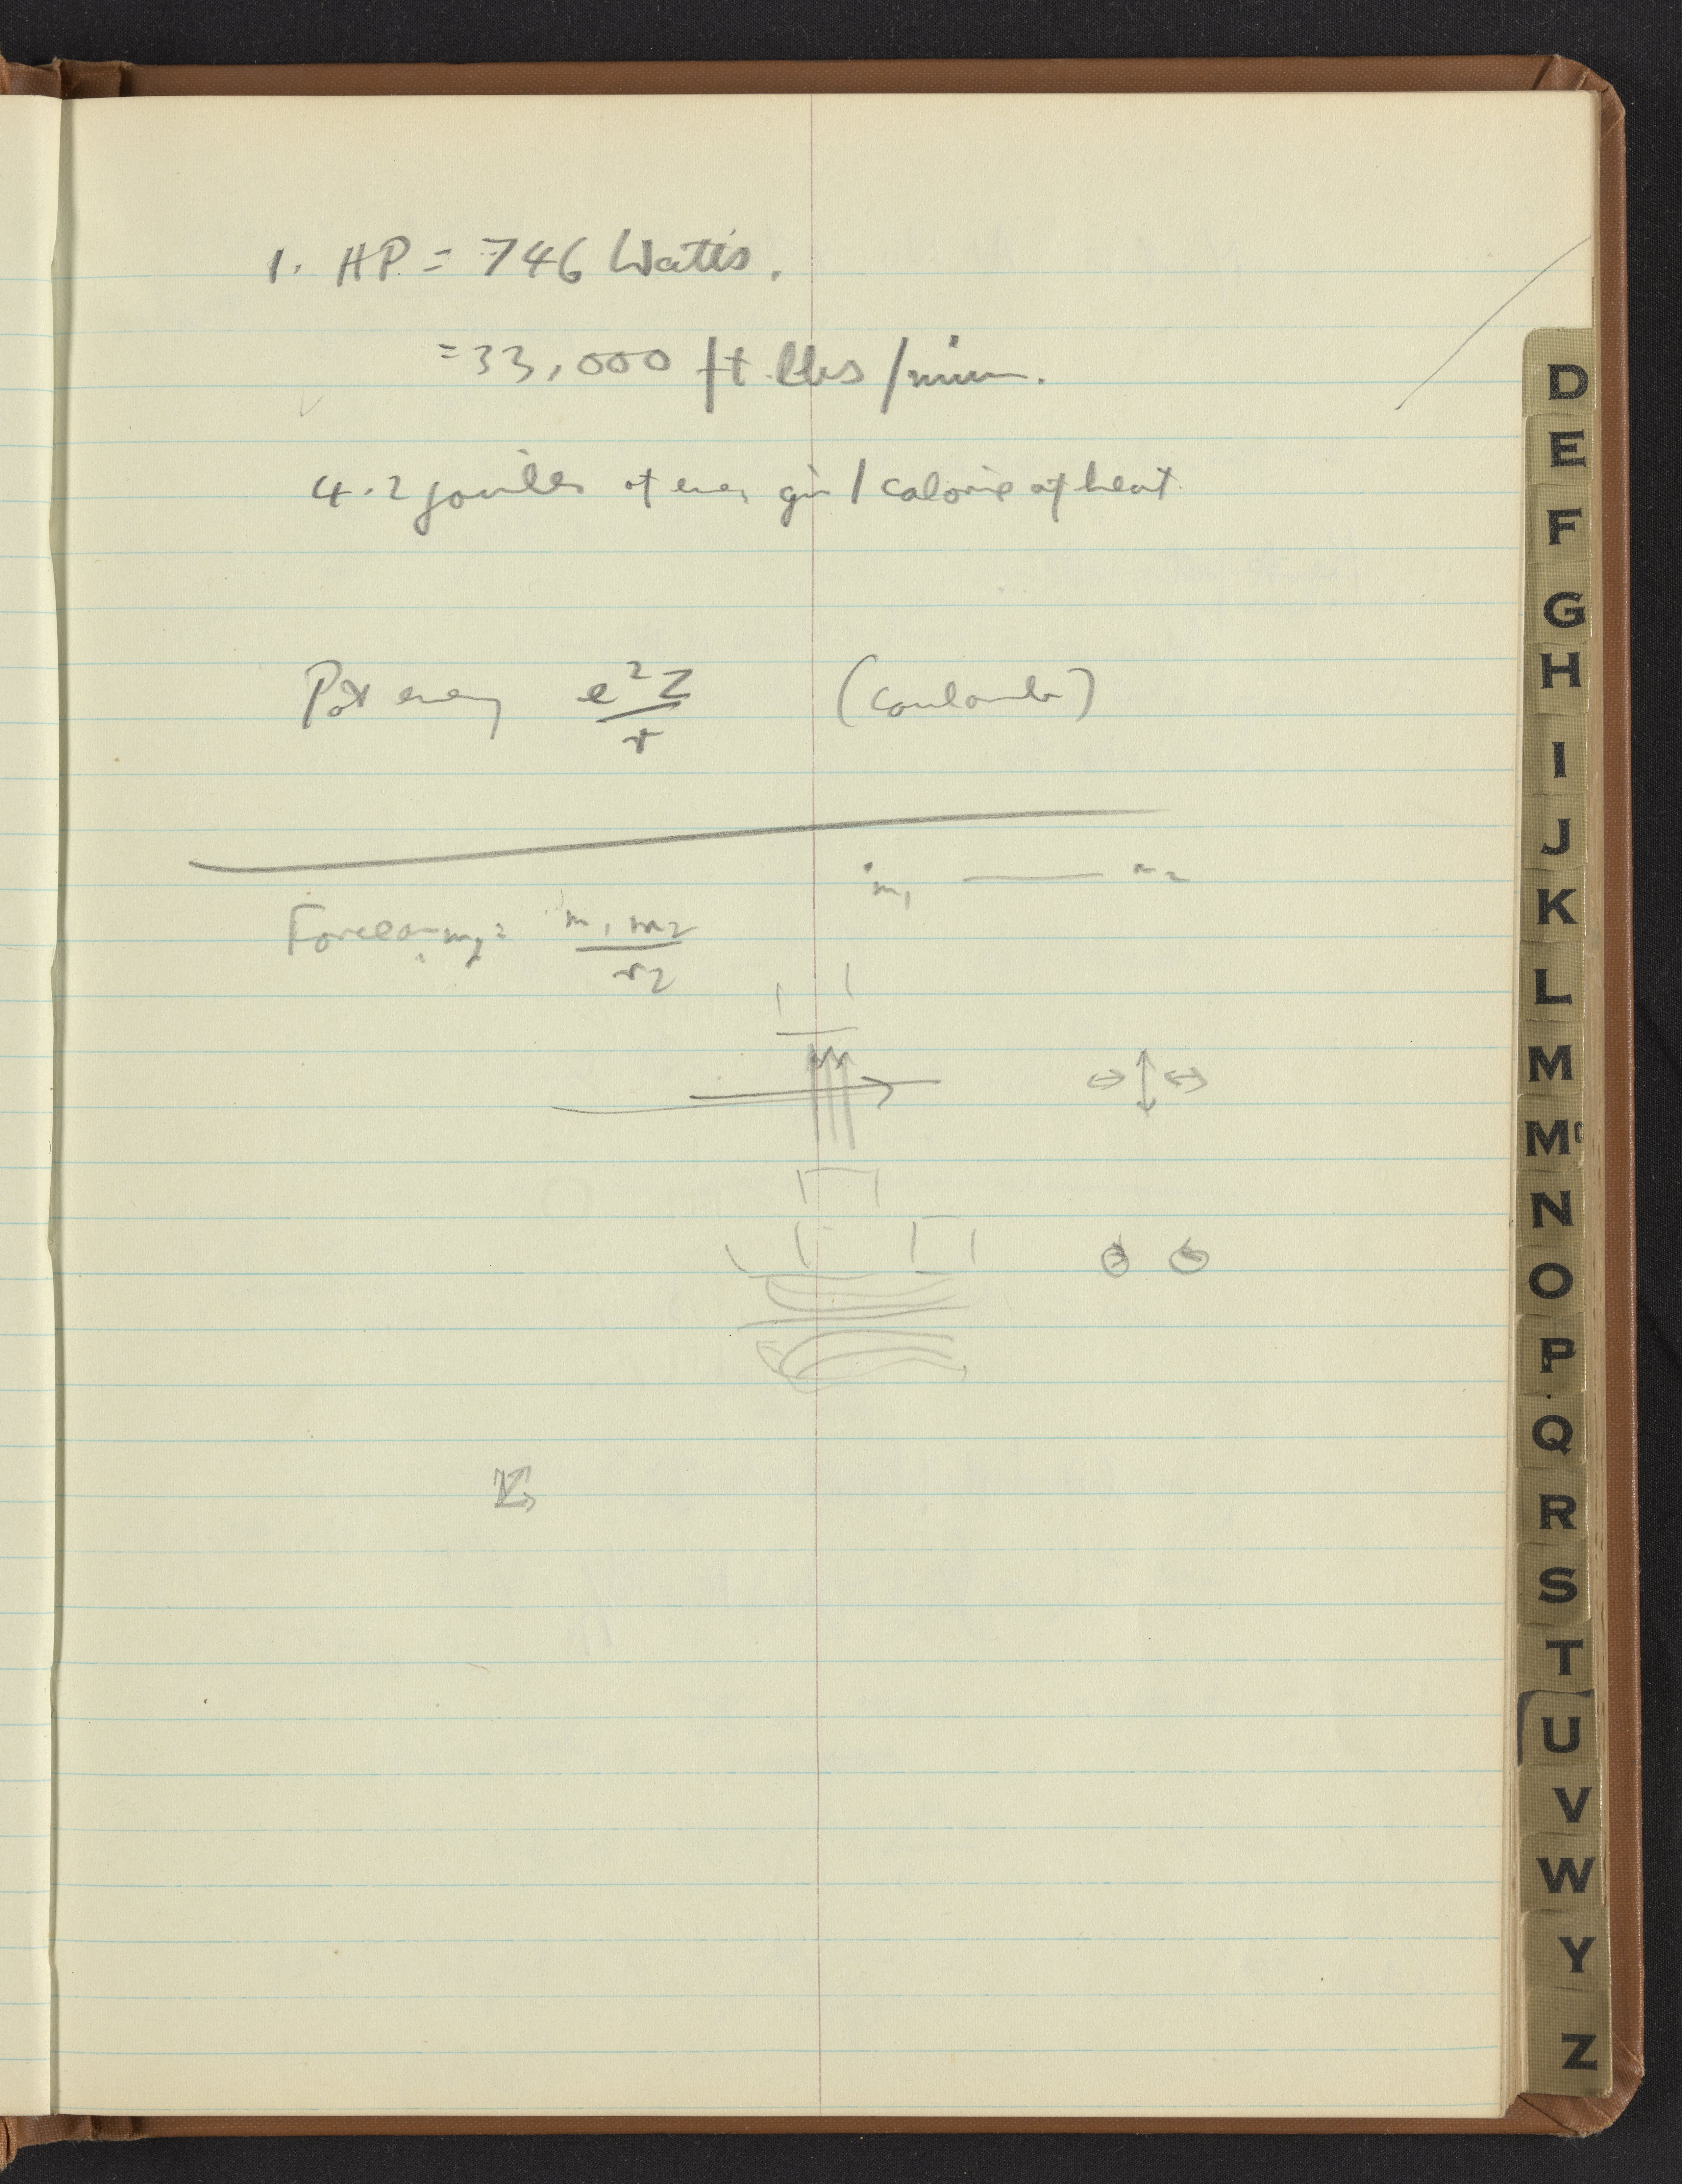 1. HP = 746 Watts.
= 33,000 ft lbs/min.
4.2 joules of ener giv 1 calorie of heat
Pot energy e²Z/r (Coulomb)
m₁ —— m₂
Force on m₂ = m₁ m₂/r₂
D
E
F
G
H
I
J
K
L
M
Mc
N
O
P
Q
R
S
T
U
V
W
Y
Z